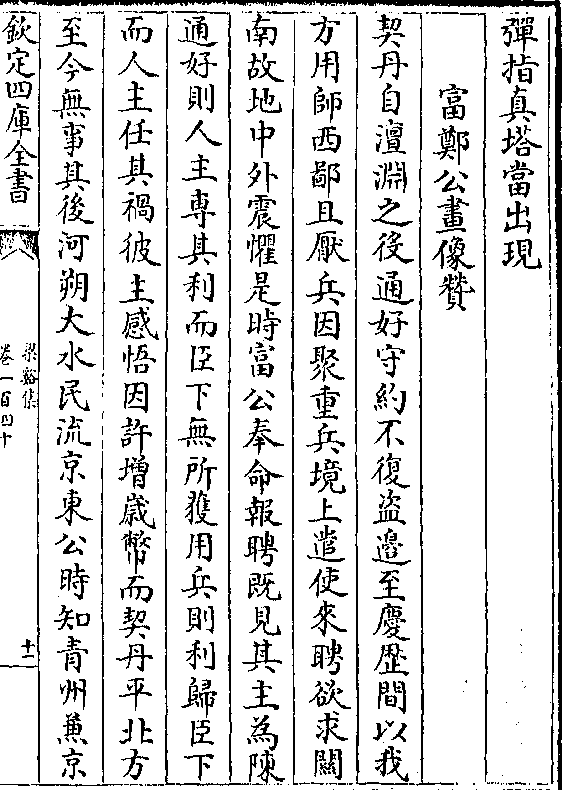 彈指真塔當出現
富鄭公畫像贊
契丹自澶淵之後通好守約不復盜邊至慶歴間以我
方用師西鄙且厭兵因聚重兵境上遣使來聘欲求關
南故地中外震懼是時富公奉命報聘既見其主為陳
通好則人主専其利而臣下無所獲用兵則利歸臣下
而人主任其禍彼主感悟因許增嵗幣而契丹平北方
至今無事其後河朔大水民流京東公時知青州兼京
欽定四庫全書
梁谿集
卷一百四十
十一